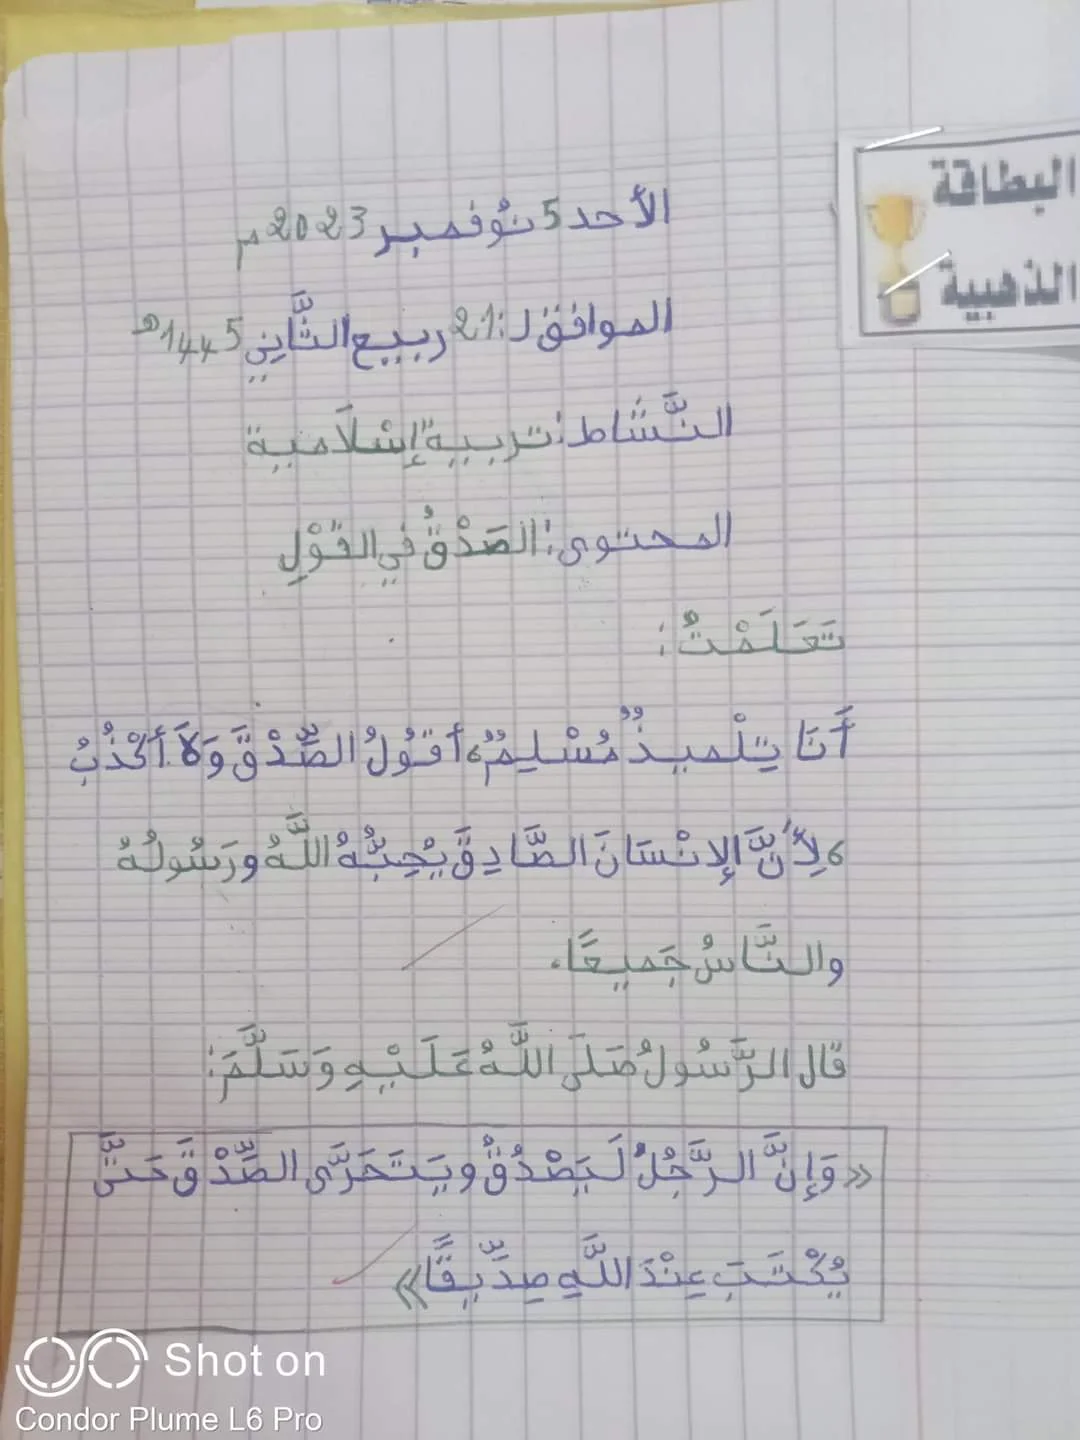 البطاقة
الذهبية
الأحد 5 نوفمبر 2023م
الموافق لـ: 21 ربيع الثَّاني 1445هـ
النَّشَاط: تربية إسْلَامية
المحتوى: الصّدْقُ في القَوْلِ
تَعَلَمْتُ:
أَنَا تِلْميذُ مُسْلِمٌ، أقُولُ الصِّدْقَ وَلَا أَكْذُبُ
، لِأَنَّ الإنْسَانَ الصَّادِقَ يُحِبُّهُ اللَّهُ ورَسُولُهُ
والنَّاسُ جَمِيعًا.
قال الرَّسُولُ صَلَى اللَّهُ عَلَيْهِ وَسَلَّمَ:
«وَإِنَّ الرَّجُلُ لَيَصْدُقُ ويَتَحَرَّى الصِّدْقَ حَتَّى
يُكْتَبَ عِنْدَ اللَّهِ صِدِّيقًا»
Shot on
Condor Plume L6 Pro